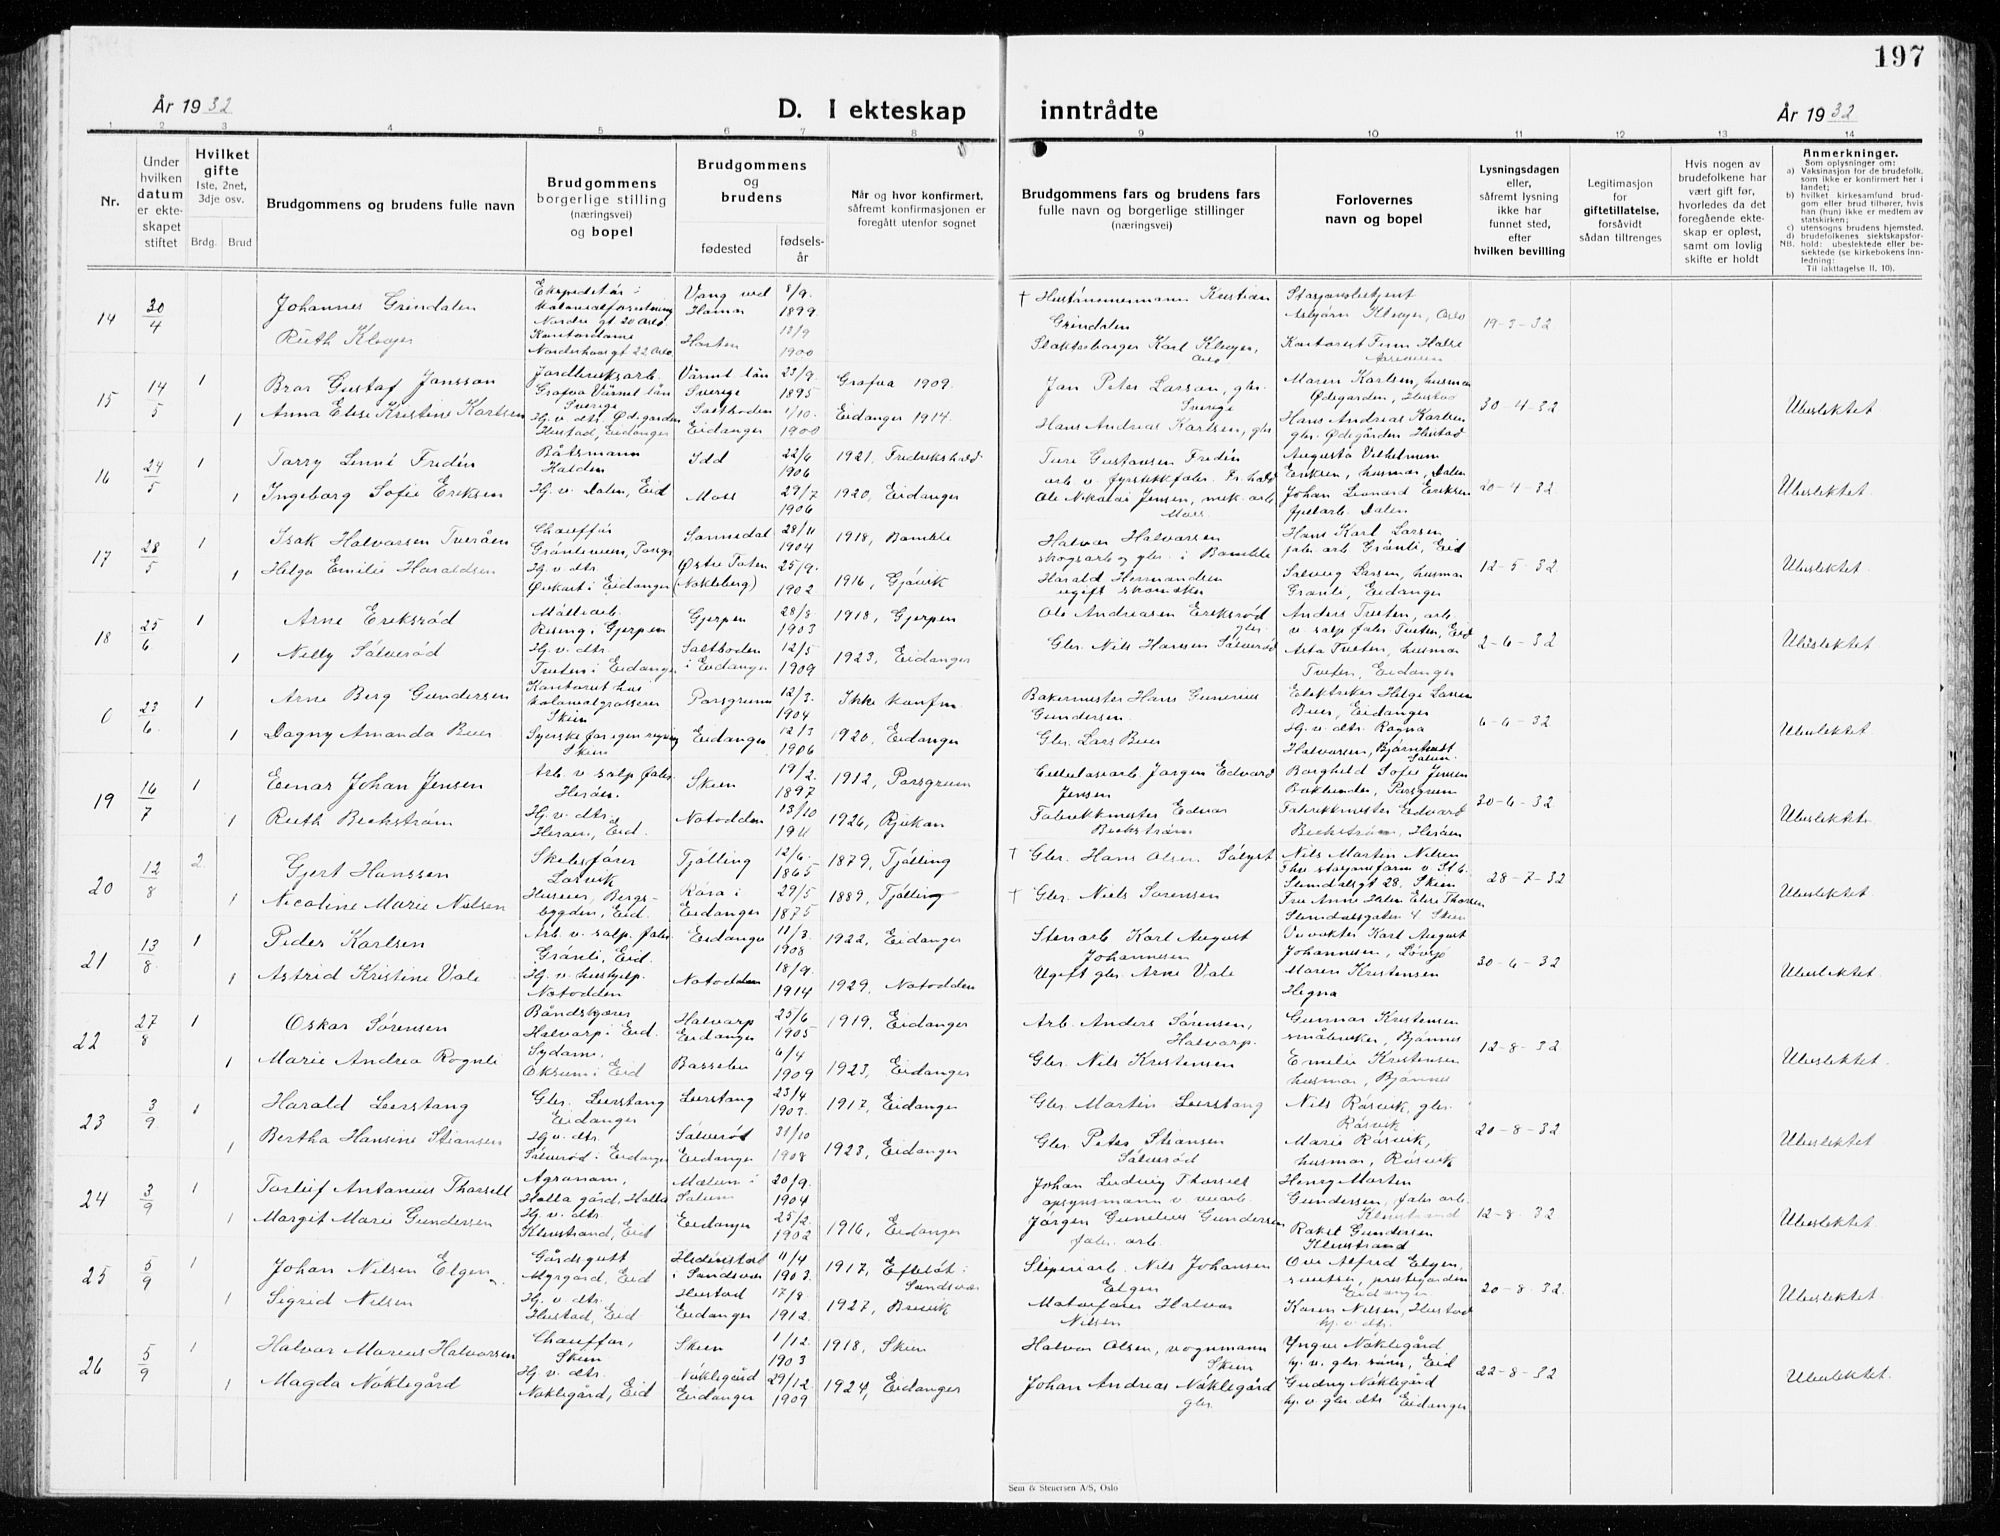 197
År 1932
D. I ekteskap inntrådte
År 1932
1 2 3 4 5 6 7 8 9 10 11 12 13 14
Nr.
Under hvilken datum er ekteskapet stiftet
Hvilket gifte
1ste, 2net, 3dje osv.
Brdg. Brud
Brudgommens og brudens fulle navn
Brudgommens borgerlige stilling (næringsvei) og bopel
Brudgommens og brudens
fødested
fødselsår
Når og hvor konfirmert, såfremt konfirmasjonen er foregått utenfor sognet
Brudgommens fars og brudens fars fulle navn og borgerlige stillinger (næringsvei)
Forlovernes navn og bopel
Lysningsdagen eller, såfremt lysning ikke har funnet sted, efter hvilken bevilling
Legitimasjon for giftetillatelse, forsåvidt sådan tiltrenges
Hvis nogen av brudefolkene har vært gift før, hvorledes da det foregående ekteskap er opløst, samt om lovlig skifte er holdt
Anmerkninger.
Som oplysninger om:
a) Vaksinasjon for de brudefolk. som ikke er konfirmert her i landet;
b) hvilket kirkesamfund brudgom eller brud tilhører, hvis han (hun) ikke er medlem av statskirken;
c) utensogns brudens hjemsted.
d) brudefolkenes slektskapsforhold: ubeslektede eller beslektede (se kirkebokens innledning:
NB.
Til iakttagelse II, 10).
14 30/4 Johannes Grindalen
Nordre gt 20 Oslo
Vang ved Hamar 8/9 1899
† Kristian Grindalen
19-3-32
Ruth Klever
Kontordame
Horten 13/9 1900
Karl Klever, Oslo
15 14/5 1 Bror Gustaf Jansson
Jordbruksarb.
Grafva Värml. län Sverige
Värml. län Sverige 23/9 1895
Grafva 1909.
Jan Peter Larson, gbr. Sverige
Maren Karlsen, husmor Ødegården, Herstad
30-4-32
Ubeslektet
1 Anna Elise Kristine Karlsen
Hj. v. dtr. Ødegården Herstad, Eidanger
Saltboden Eidanger 1/10 1900
Eidanger 1914.
Hans Andreas Karlsen, gbr
Hans Andreas Karlsen gbr. Ødegården Herstad
16 24/5 1 Torry Linné Fredén
Båtsmann Halden
Idd 22/6 1906
1921, Fredrikshald
Ture Gustavsen Fredén
Augusta Vilhelmine Eriksen, husmor, Dalen
20-4-32
Ubeslektet
1 Ingeborg Sofie Eriksen
Hj. v. Dalen, Eid
Moss 29/7 1906
1920, Eidanger
Ole Nikolai Jensen, mek. arb. Moss
Johan Leonard Eriksen Dalen
17 28/5 1 Isak Halvorsen Tveråen
Chauffør
Grønliveien, Porsgr
Sannidal 28/11 1904
1918, Bamble
Halvor Halvorsen skogsarb og gbr. i Bamble
Hans Karl Larsen fabr. arb Grønli, Eid
12-5-32
Ubeslektet
1 Helga Emilie Haraldsen
Hj. v. dtr
Ørkurt i Eidanger
Østre Toten (Nøkleberg) 25/9 1902
1916, Gjøvik
Harald Hermandsen ugift skomaker
Solveig Larsen, husmor Grønli, Eidanger
18 25/6 1 Arne Eriksrød
Rising i Gjerpen
Gjerpen 28/8 1903
1918, Gjerpen
Ole Andreasen Eriksrød gbr
Anders Tveten, arb. v. salp. fabr Tveten, Eid
2-6-32
Ubeslektet
1 Nelly Sølverød
Hj. v. dtr.
Tveten i Eidanger
Saltboden i Eidanger 12/5 1909
1923, Eidanger
Gbr. Nils Hansen Sølverød
Asta Tveten, husmor Tveten, Eidanger
0 23/6 1 Arne Berg Gundersen
Kontorist hos kolonialgrosserer Skien
Porsgrunn 12/3 1904
Ikke konfirm.
Bakermester Hans Gunerius Gundersen.
Elektriker Helge Larsen Buer, Eidanger
6-6-32
Ubeslektet
1 Dagny Amanda Buer
Syerske for egen regning Skien
Eidanger 12/3 1906
1920, Eidanger
Gbr. Lars Buer
Hj. v. dtr. Ragna Halvorsen, Bjørntvedt Solum
19 16/7 1 Einar Johan Jensen
Arb. v. salp. fabr. Herøen.
Skien 19/2 1897
1912, Porsgrunn
Cellulosearb. Jørgen Edvard Jensen
Borghild Sofie Jensen Porsgrunn
30-6-32
Ubeslektet
1 Ruth Beckstrøm
Hj. v. dtr. Herøen, Eid.
Notodden 13/10 1911
1926, Rjukan
Fabrikkmester Edvar Beckstrøm
Fabrikkmester Edvard Beckstrøm, Herøen
20 12/8 2. Gjert Hanssen
Skibsfører Larvik
Tjølling 12/6 1865
1879, Tjølling
† Gbr. Hans Olsen Sølyst
Nils Marten Nilsen
Stendalsgt 28. Skien
28-7-32
Ubeslektet
1 Nicoline Marie Nielsen
Huseier, Bergsbygden, Eid.
Røra i Eidanger 29/5 1875
1889, Tjølling
† Gbr. Niels Sørensen
Stendalsgaten 4 Skien
21 13/8 1 Peder Karlsen
Arb. v. salp. fabr. Grønli, Eid.
Eidanger 11/3 1908
1922, Eidanger
Stenarb Karl August Johannesen
Karl August Johannesen, Løvsjø
30-6-32
Ubeslektet
1 Astrid Kristine Vale
Hj. v. hushjelp. Notodden
Notodden 18/9 1914
1929, Notodden
Ugift gbr. Arne Vale
Maren Kristensen Hegna
22 27/8 1 Oskar Sørensen
Halvarp i Eid.
Halvarp Eidanger 23/6 1905
1919, Eidanger
Arb. Anders Sørensen, Halvarp.
Gunnar Kristensen småbruker, Bjønnes
12-8-32
Ubeslektet
1 Marie Andrea Rognli
Sydame, Oksum i Eid
Bassebu 6/4 1909
1923, Eidanger
Gbr. Nils Kristensen
Emelie Kristensen husmor, Bjønnes
23 3/9 1 Harald Lerstang
Gbr. Lerstang Eidanger
Lerstang 23/4 1902.
1917, Eidanger
Gbr Martin Lerstang
Nils Rørvik, gbr. Rørvik
20-8-32
Ubeslektet
1 Bertha Hansine Stiansen
Hj. v. dtr. Sølverød i Eidanger
Sølverød Eidanger 31/10 1908
1923, Eidanger
Gbr Peter Stiansen Sølverød
Marie Rørvik, husmor, Rørvik
24 3/9 1 Torleif Antonius Thorsell
Agronom, Holla gård, Holla
Mælum i Solum 20/9 1904
Johan Ludvig Thorsell opsynsmann v. veiarb.
Henry Morten Gundersen, fabr arb. Klevstrand
12-8-32
Ubeslektet
1 Margit Marie Gundersen
Hj. v. dtr Klevstrand, Eid
Eidanger 25/2 1902
1916, Eidanger
Jørgen Gunelius Gundersen fabr. arb.
Rakel Gundersen Klevstrand
25 5/9 1 Johan Nilsen Elgen
Gårdsgutt Myrgård, Eid
Hedenstad i Sandsvær 11/4 1903.
1917, Efteløt i Sandsvær
Sliperiarb. Nils Johansen Elgen
Ove Alfred Elgen, prestegården Eidanger
20-8-32.
Ubeslektet.
1 Sigrid Nilsen
Hj. v. dtr. Herstad, Eid
Herstad Eidanger 17/8 1912.
1927, Brevik
Motorfører Halvor Nilsen
Karen Nilsen, Herstad hj. v. dtr.
26 5/9 1 Halvor Marius Halvorsen
Chauffør, Skien
Skien 1/12 1903
1918, Skien
Halvor Olsen, vognmann Skien
Yngve Nøklegård hj. v. gbr sønn, Eid
22-8-32
Ubeslektet.
1 Magda Nøklegård
Hj. v. dtr. Nøklegård, Eid
Nøklegård Eidanger 29/12 1909
1924, Eidanger
Johan Andreas Nøklegård gbr.
Gudny Nøklegård hj. v. gbr dtr. Eidanger
Sem & Stenersen A/S, Oslo